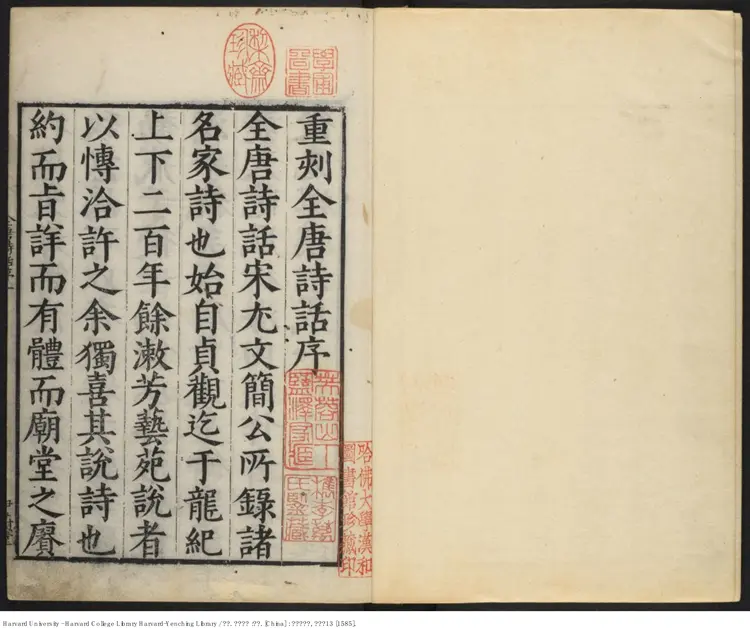 重刻全唐詩話序
全唐詩話宋尤文簡公所錄諸
名家詩也始自貞觀迄于龍紀
上下二百年餘漱芳藝苑說者
以愽洽許之余獨喜其說詩也
約而旨詳而有體而廟堂之賡
哈佛大學漢和
圖書館珍藏印
Harvard University - Harvard College Library Harvard-Yenching Library / ??. ???? /??. [China] : ?????, ???13 [1585].